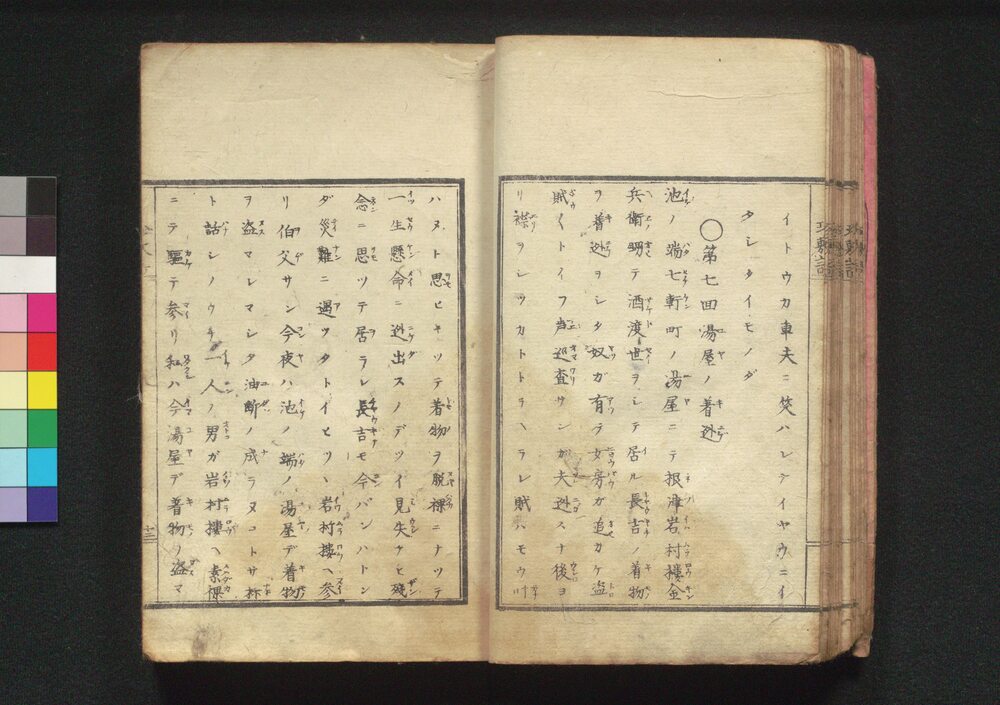 イトウカ車夫ニ笑ハレテイヤウニイ
タシタイモノダ
○第七回湯屋ノ着逃
池ノ端七軒町ノ湯屋ニテ根津岩村樓金
兵衛甥テ酒渡世ヲシテ居ル長吉ノ着物
ヲ着逃ヲシタ奴ガ有テ女房ガ追カケ盗
賊くトイフ声巡査サンガ夫逃スナ後ヨ
リ襟ヲシツカトトラヘラレ賊ハモウ叶
ハヌト思ヒキツテ着物ヲ脱裸ニナツテ
一生懸命ニ逃出スノデツイ見失ナヒ殘
念ニ思ツテ居ラレ長吉モ今バンハトン
ダ災難ニ遇ツタトイヒツヽ岩村樓ヘ参
リ伯父サン今夜ハ池ノ端ノ湯屋デ着物
ヲ盗マレマシタ油断ノ成ラヌコトサ抔
ト話シノウチ一人ノ男ガ岩村樓ヘ素裸
ニテ驅テ参リ私ハ今湯屋デ着物ノ盗マ